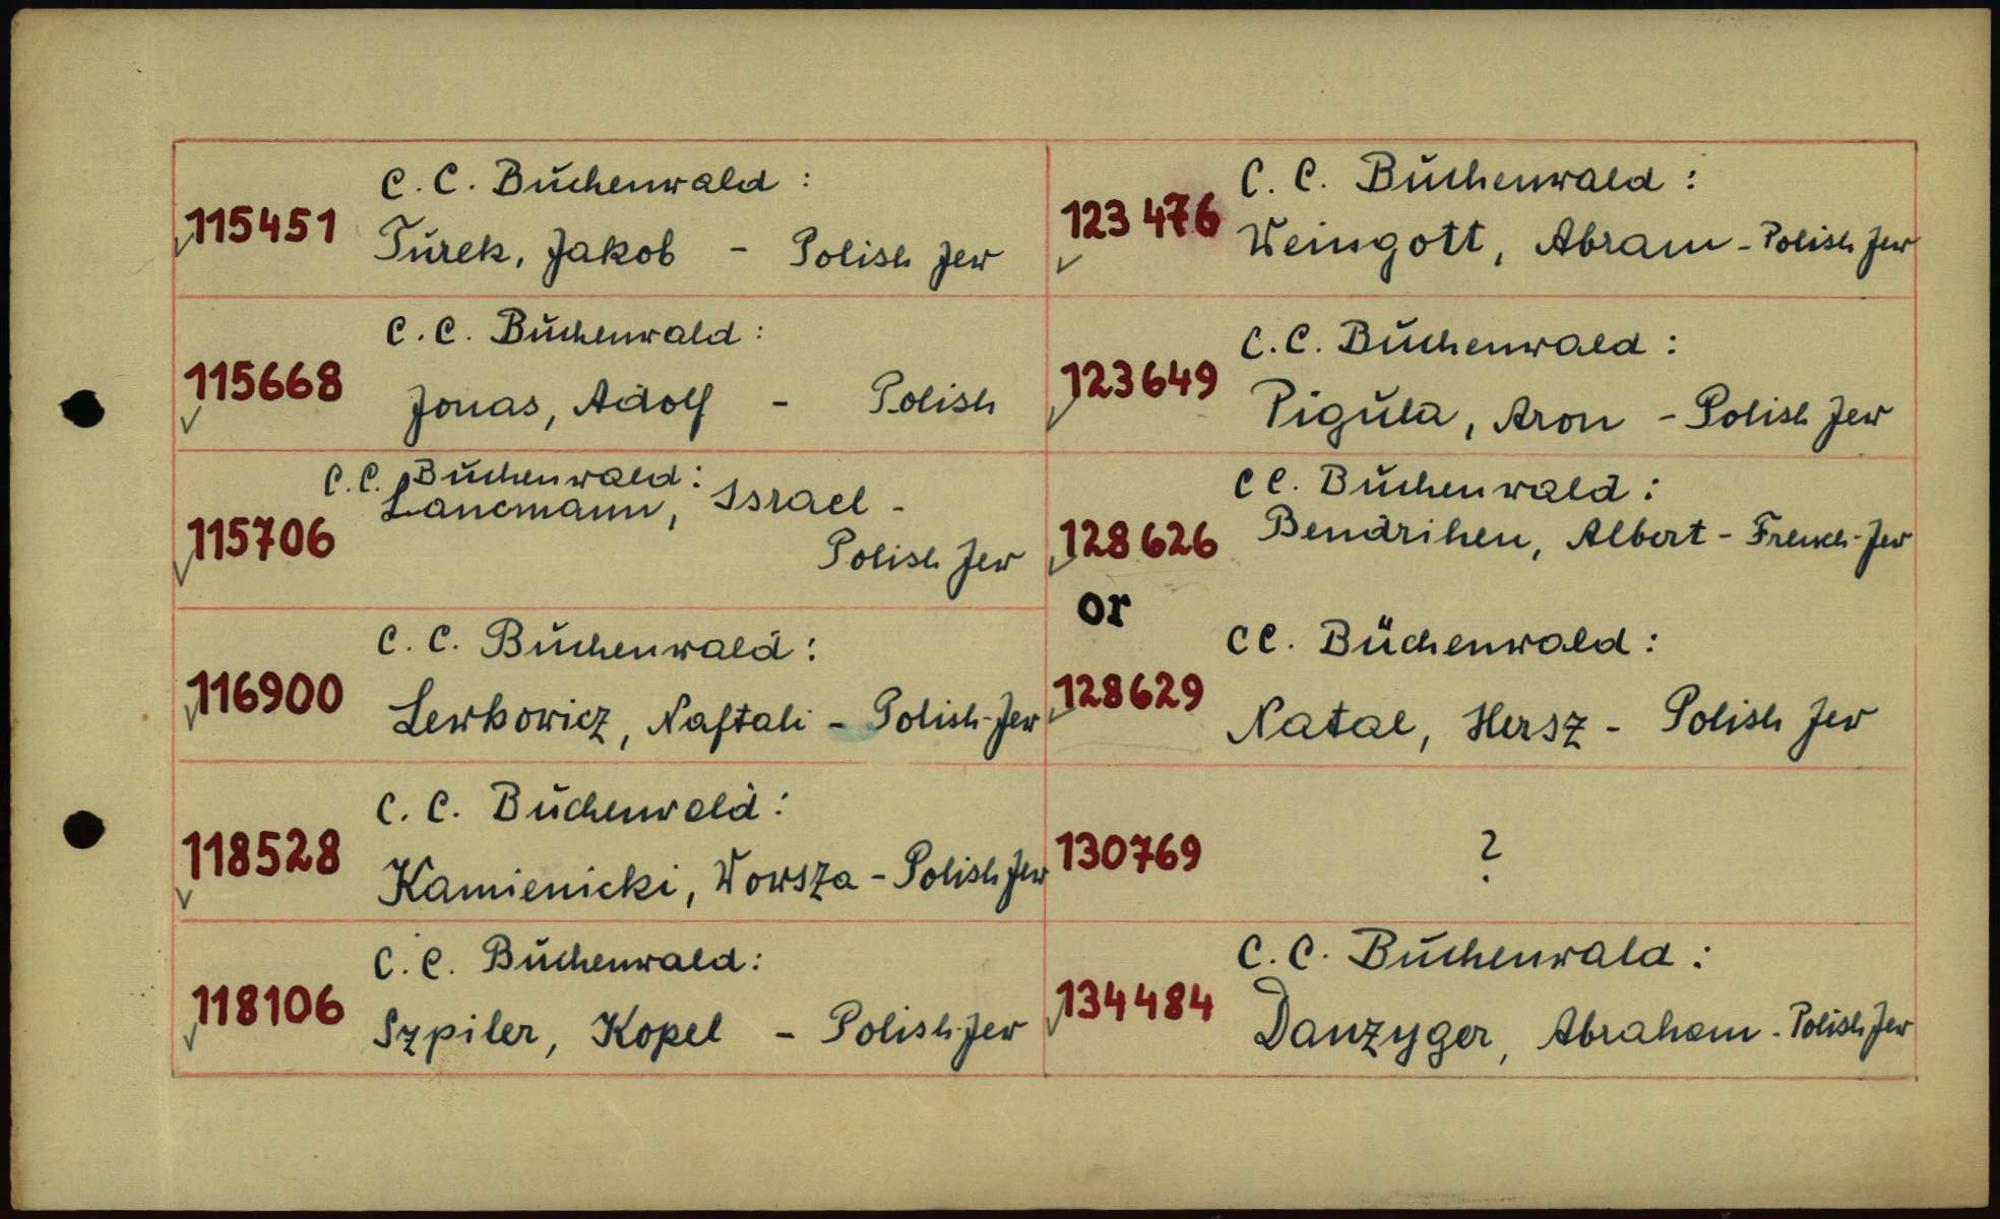 C. C. Buchenwald :
115451
Turek, Jakob - Polish Jew
C. C. Buchenwald :
115668
Jonas, Adolf - Polish
C. C. Buchenwald :
Lancmann, Israel -
115706
Polish Jew
C. C. Buchenwald :
116900
Lewkowicz, Naftali - Polish-Jew
C. C. Buchenwald :
118528
Kamienicki, Wowsza - Polish Jew
C. C. Buchenwald :
118106
Szpiler, Kopel - Polish-Jew
C. C. Buchenwald :
123476
Weingott, Abram - Polish Jew
C. C. Buchenwald :
123649
Pigula, Aron - Polish Jew
CC. Buchenwald :
128626
Bendrihen, Albert - French-Jew
or
CC. Büchenwald :
128629
Natal, Hersz - Polish Jew
130769 ?
C. C. Buchenwald :
134484
Danzyger, Abraham - Polish Jew